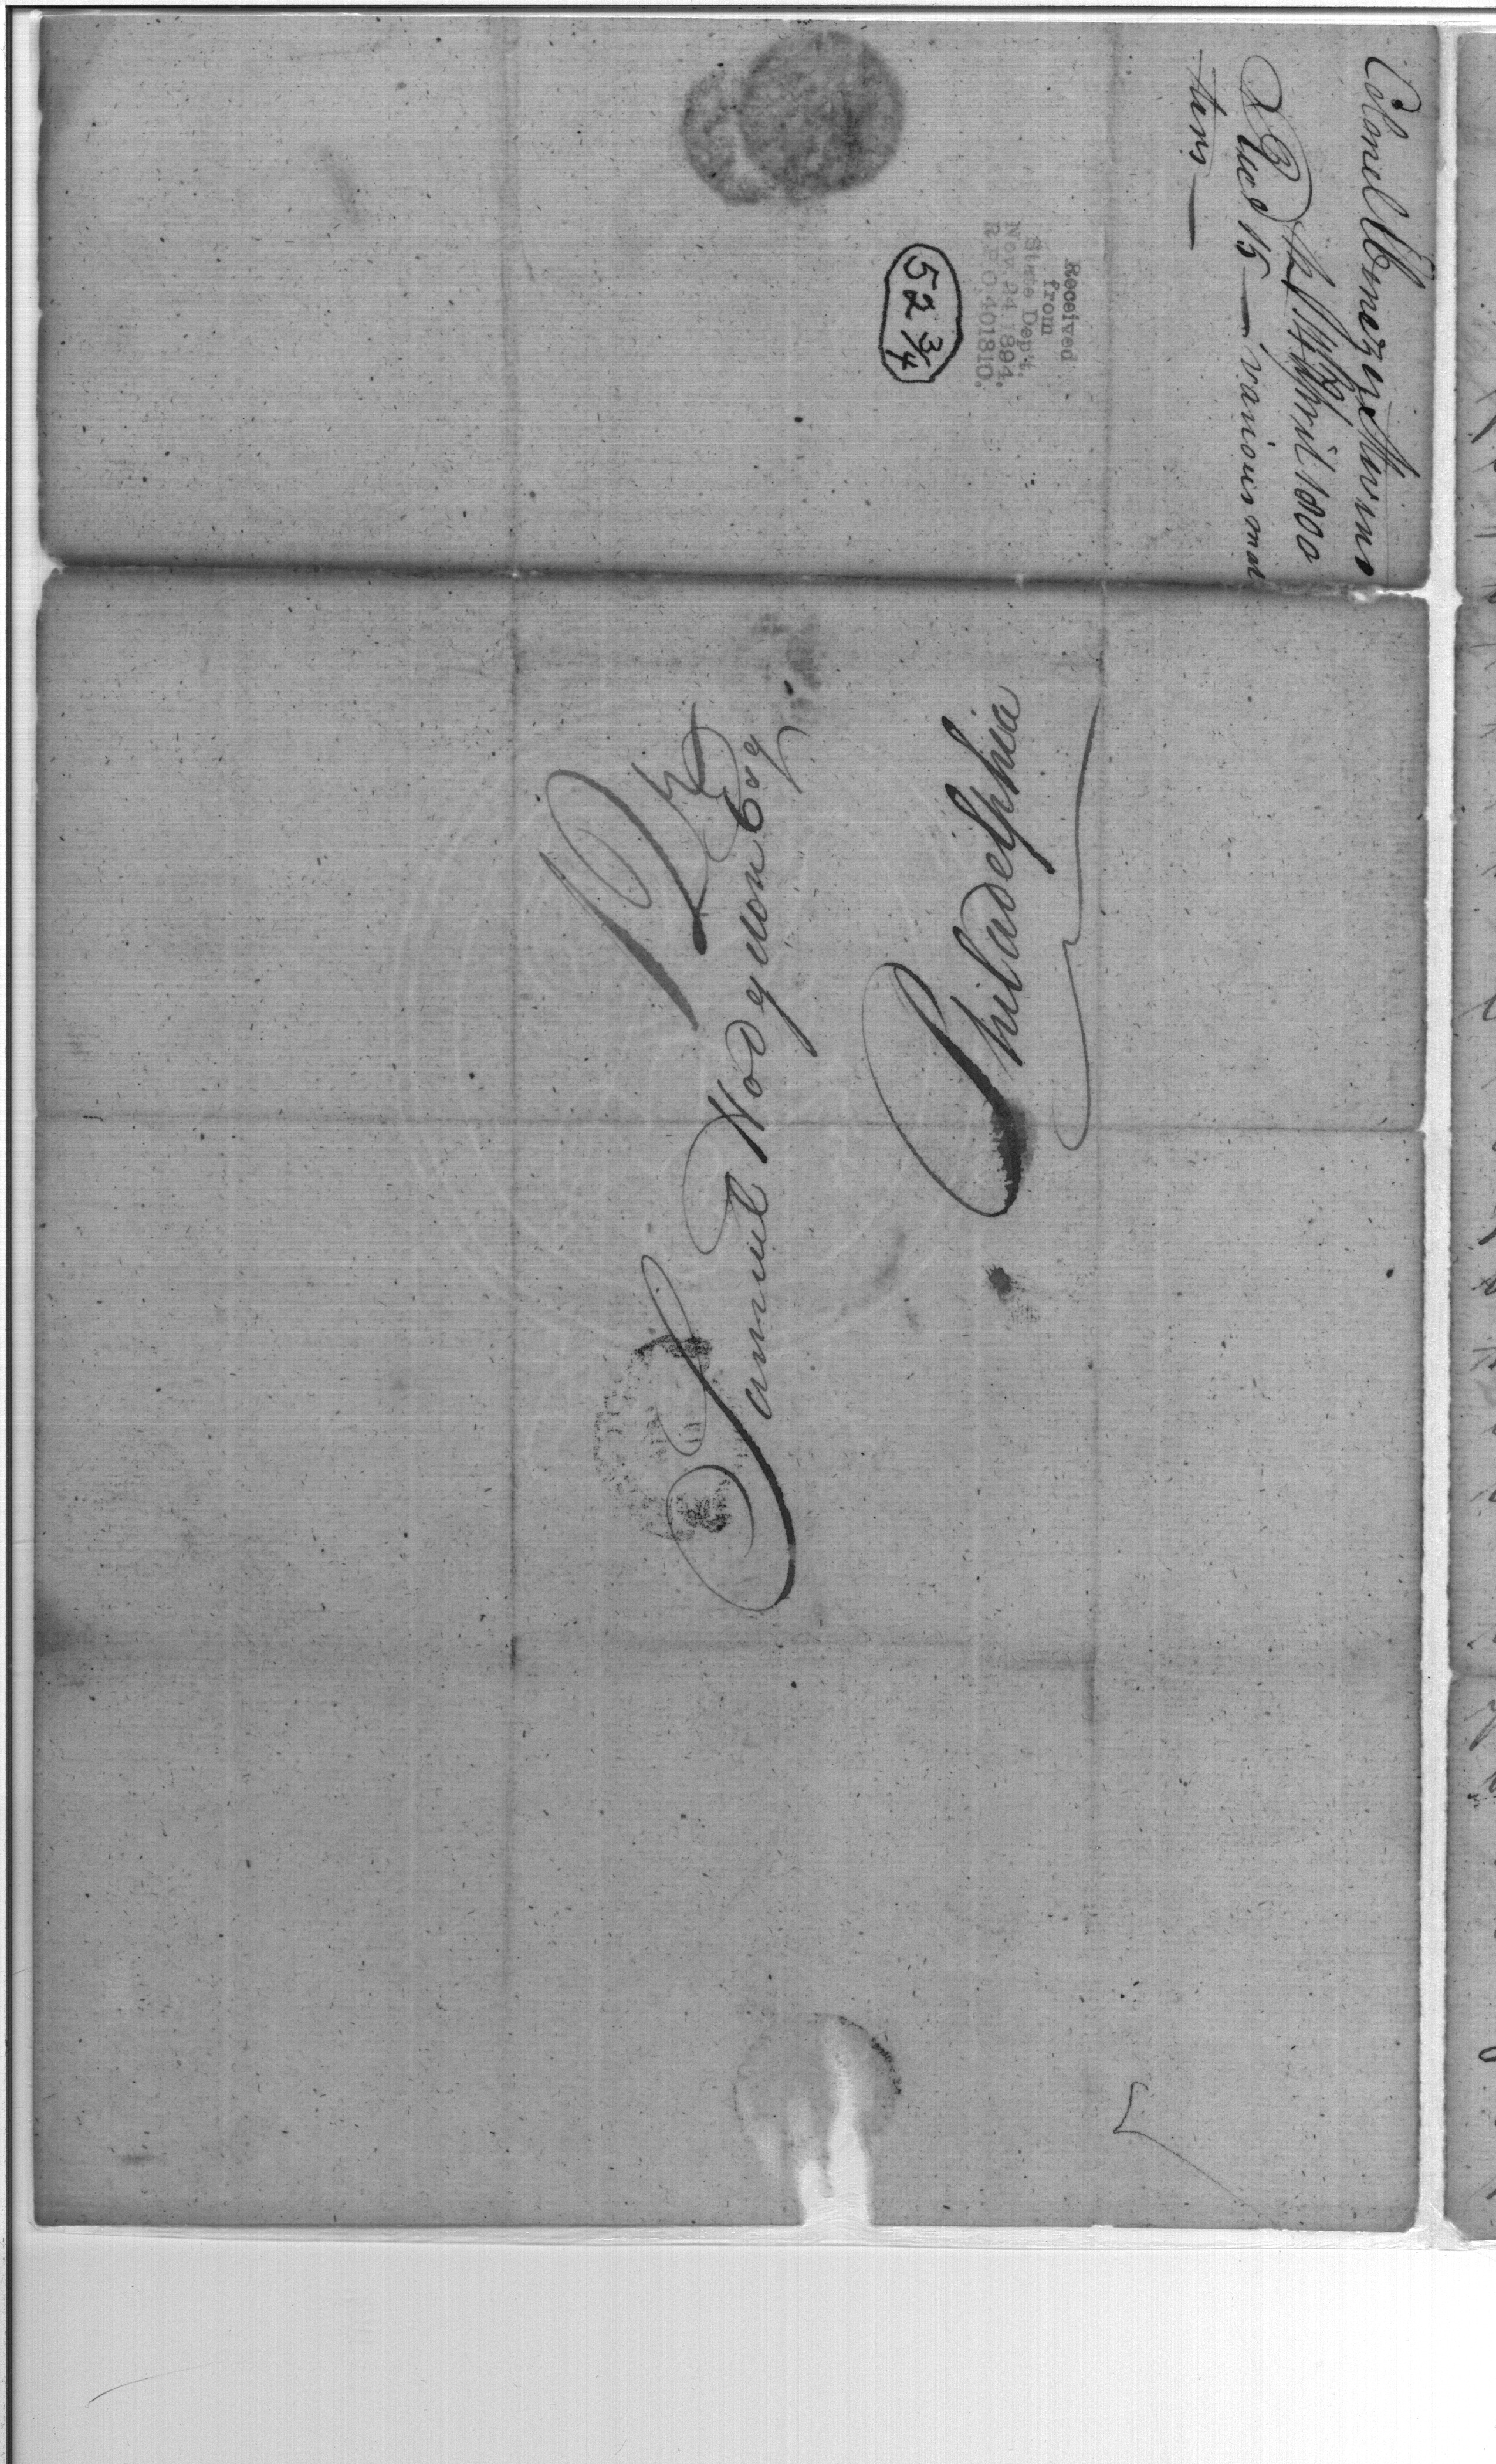 Colonel Ebenezer Stevens
14th April 1800
Rec'd 15 — various mat
ters —
Received
from
State Dep't.
Nov. 24 1894.
R.P.O. 401810.
52 3/4
Samuel Hodgdon Esq
Philadelphia